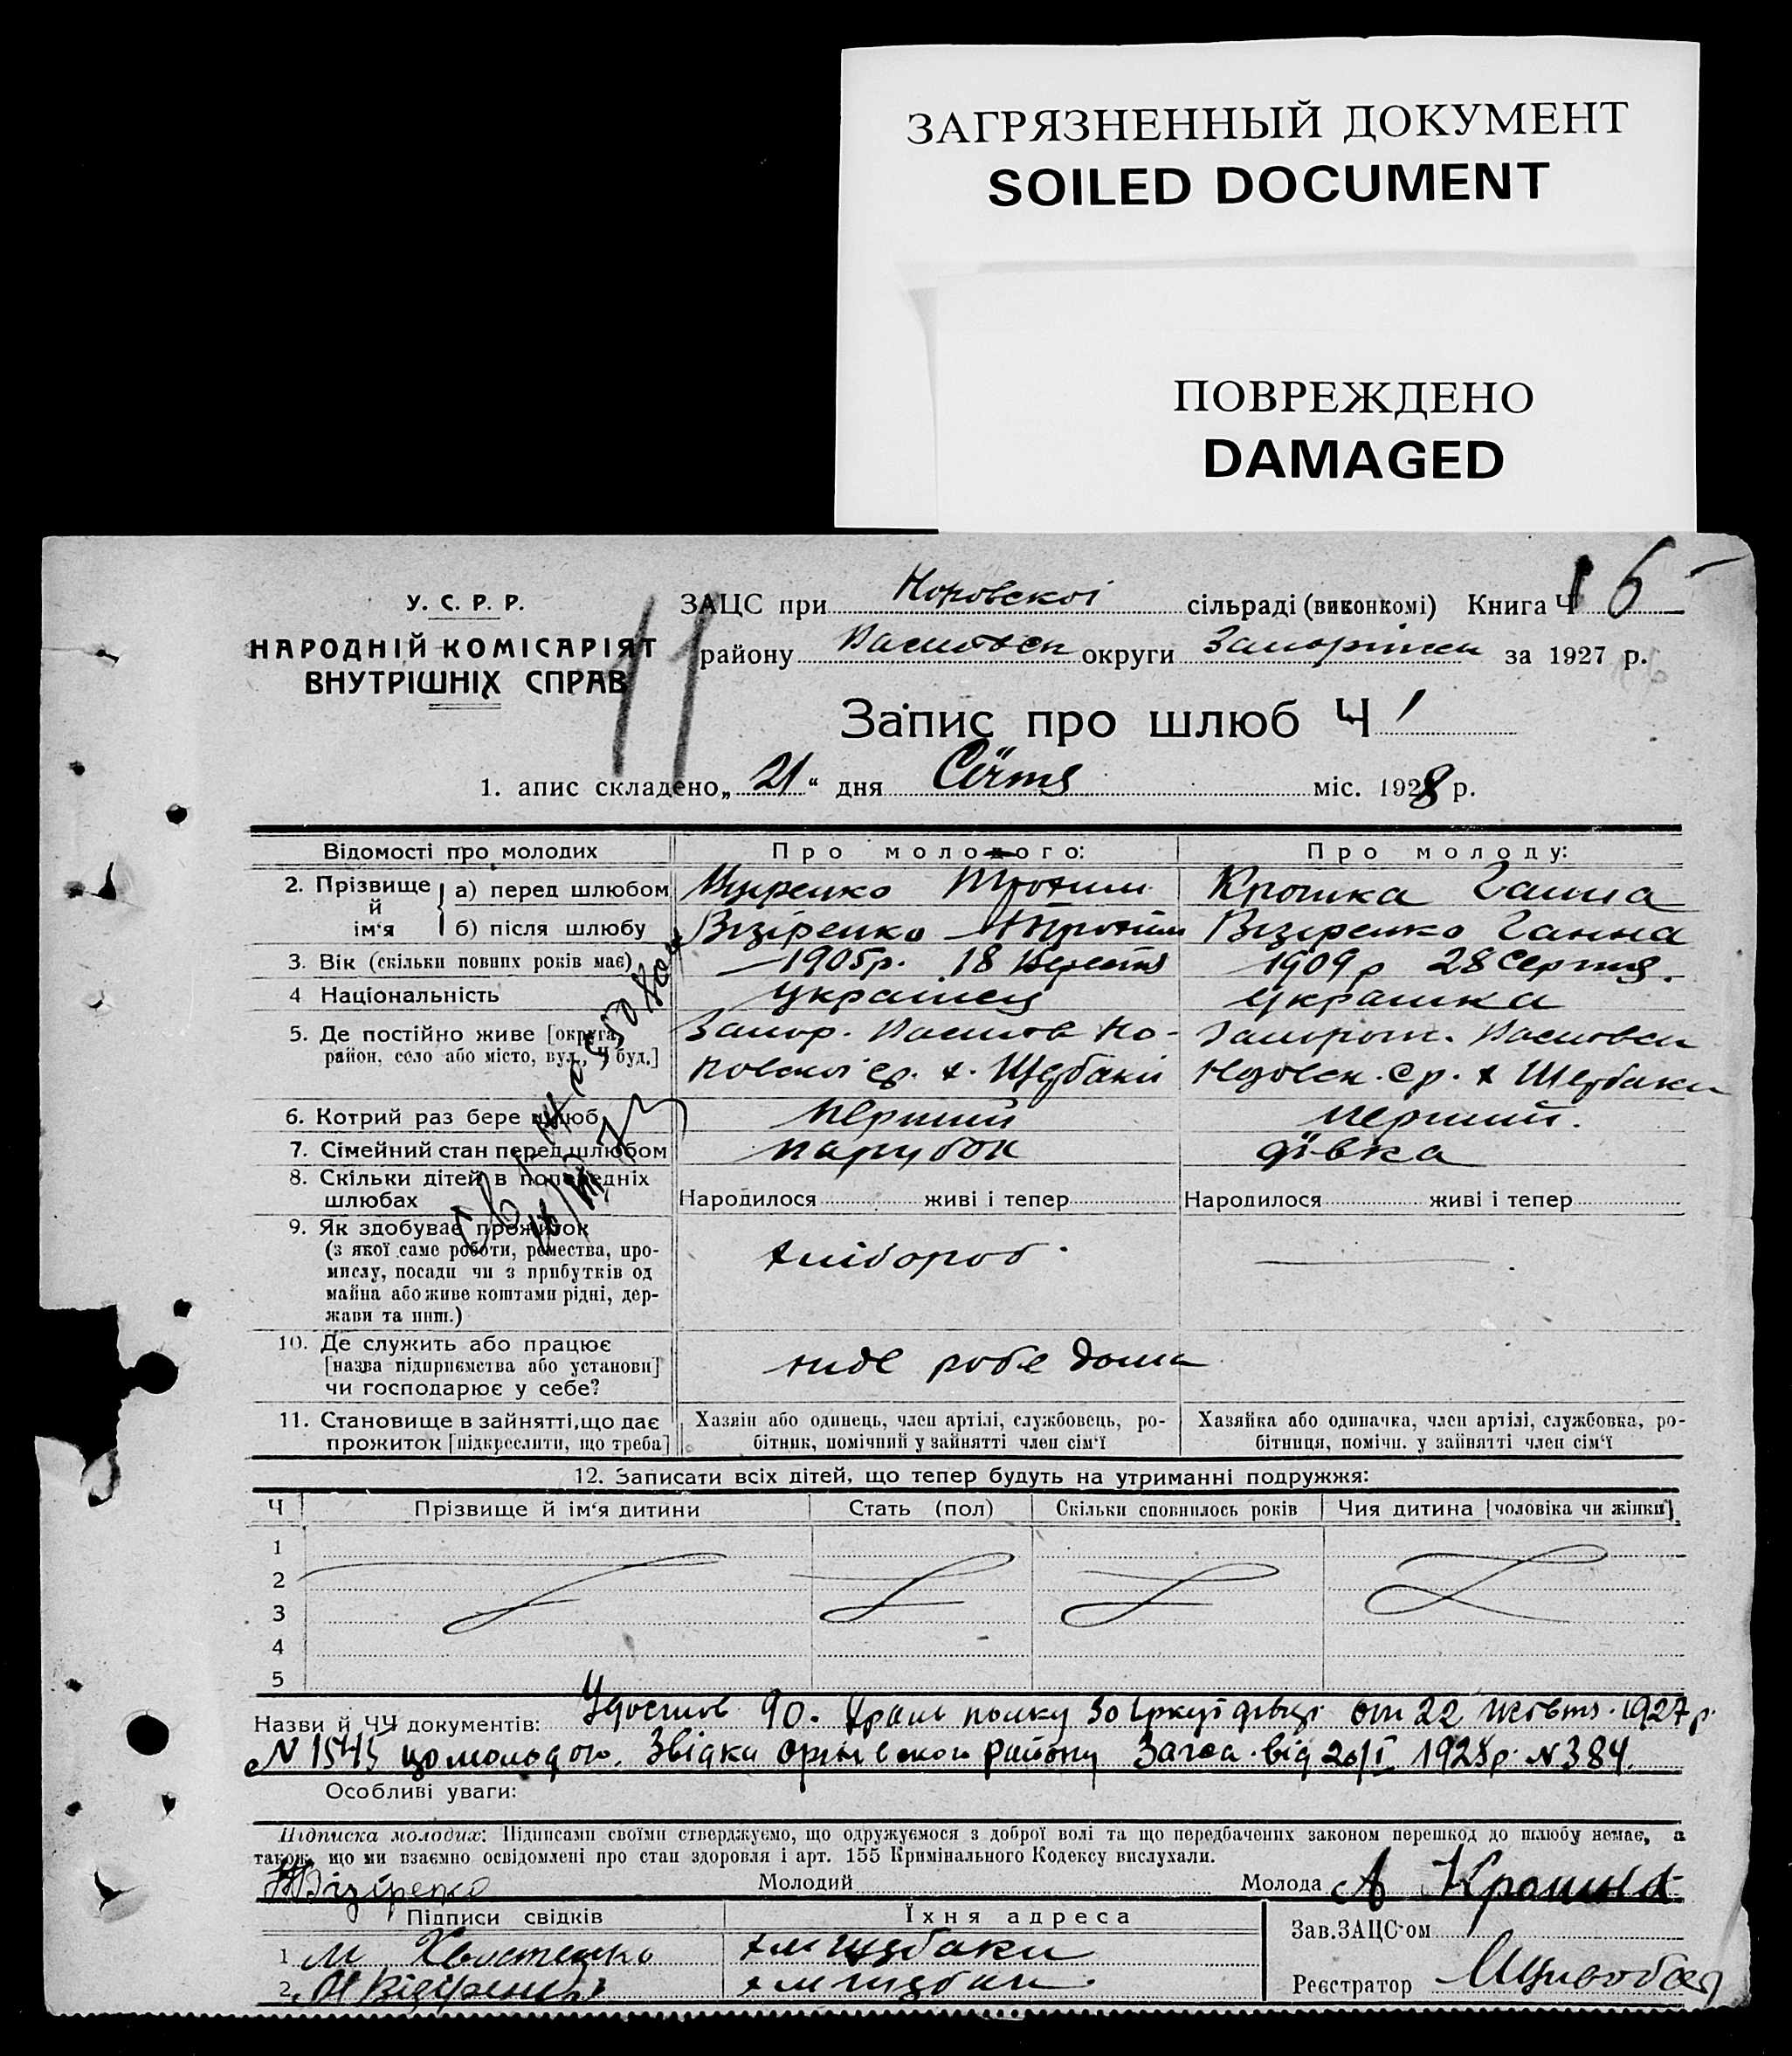 ЗАГРЯЗНЕННЫЙ ДОКУМЕНТ
SOILED DOCUMENT
ПОВРЕЖДЕНО
DAMAGED
У. С. Р. Р.
НАРОДНІЙ КОМІСАРІЯТ
ВНУТРІШНІХ СПРАВ
11
ЗАЦС при сільраді (виконкомі) Книга Ч 6
району округи за 1927 р.
Запис про шлюб Ч 1
1. апис складено „ 21 “ дня Січтя міс. 1928 р.
Відомості про молодих Про молодого: Про молоду:
2. Прізвище й ім‘я
а) перед шлюбом Крошка Ганна
б) після шлюбу Візіренко Трохим Візіренко Ганна
3. Вік (скільки повних років має) 1905р. 18 1909 р 28 Серпня.
4 Національність українец українка
5. Де постійно живе [округа, Запор.
район, село або місто, вул., Ч буд.] ср. х. Щербаки ср. х Щербаки
6. Котрий раз бере шлюб перший перший.
7. Сімейний стан перед шлюбом парубок дівка
8. Скільки дітей в попередніх
шлюбах Народилося живі і тепер Народилося живі і тепер
9. Як здобуває прожиток
(з якої саме роботи, ремества, про-
мислу, посади чи з прибутків од
майна або живе коштами рідні, дер-
жави та инш.)
хлібороб
10. Де служить або працює
[назва підприємства або установи]
чи господарює у себе?
робе дома
11. Становище в зайнятті, що дає
прожиток [підкреслити, що треба]
Хазяін або одинець, член артілі, службовець, ро-
бітник, помічний у зайнятті член сім‘ї
Хазяйка або одиначка, член артілі, службовка, ро-
бітниця, помічн. у зайнятті член сім‘ї
12. Записати всіх дітей, що тепер будуть на утриманні подружжя:
Ч Прізвище й ім‘я дитини Стать (пол) Скільки сповнилось років Чия дитина [чоловіка чи жінки]
1
2
3
4
5
Назви й ЧЧ документів: 90. полку 30 от 22 Жовтн. 1927 р.
N 1545 Звідка району Загса. від 20/I 1928р. N 384.
Особливі уваги:
Підписка молодих: Підписами своїми стверджуємо, що одружуємося з доброї волі та що передбачених законом перешкод до шлюбу немає, а
також, що ми взаємно освідомлені про стан здоровля і арт. 155 Кримінального Кодексу вислухали.
Візіренко Молодий Молода А Крошка
Підписи свідків Їхня адреса
Зав. ЗАЦС-ом
1 М Хвостенко
2.
Реєстратор